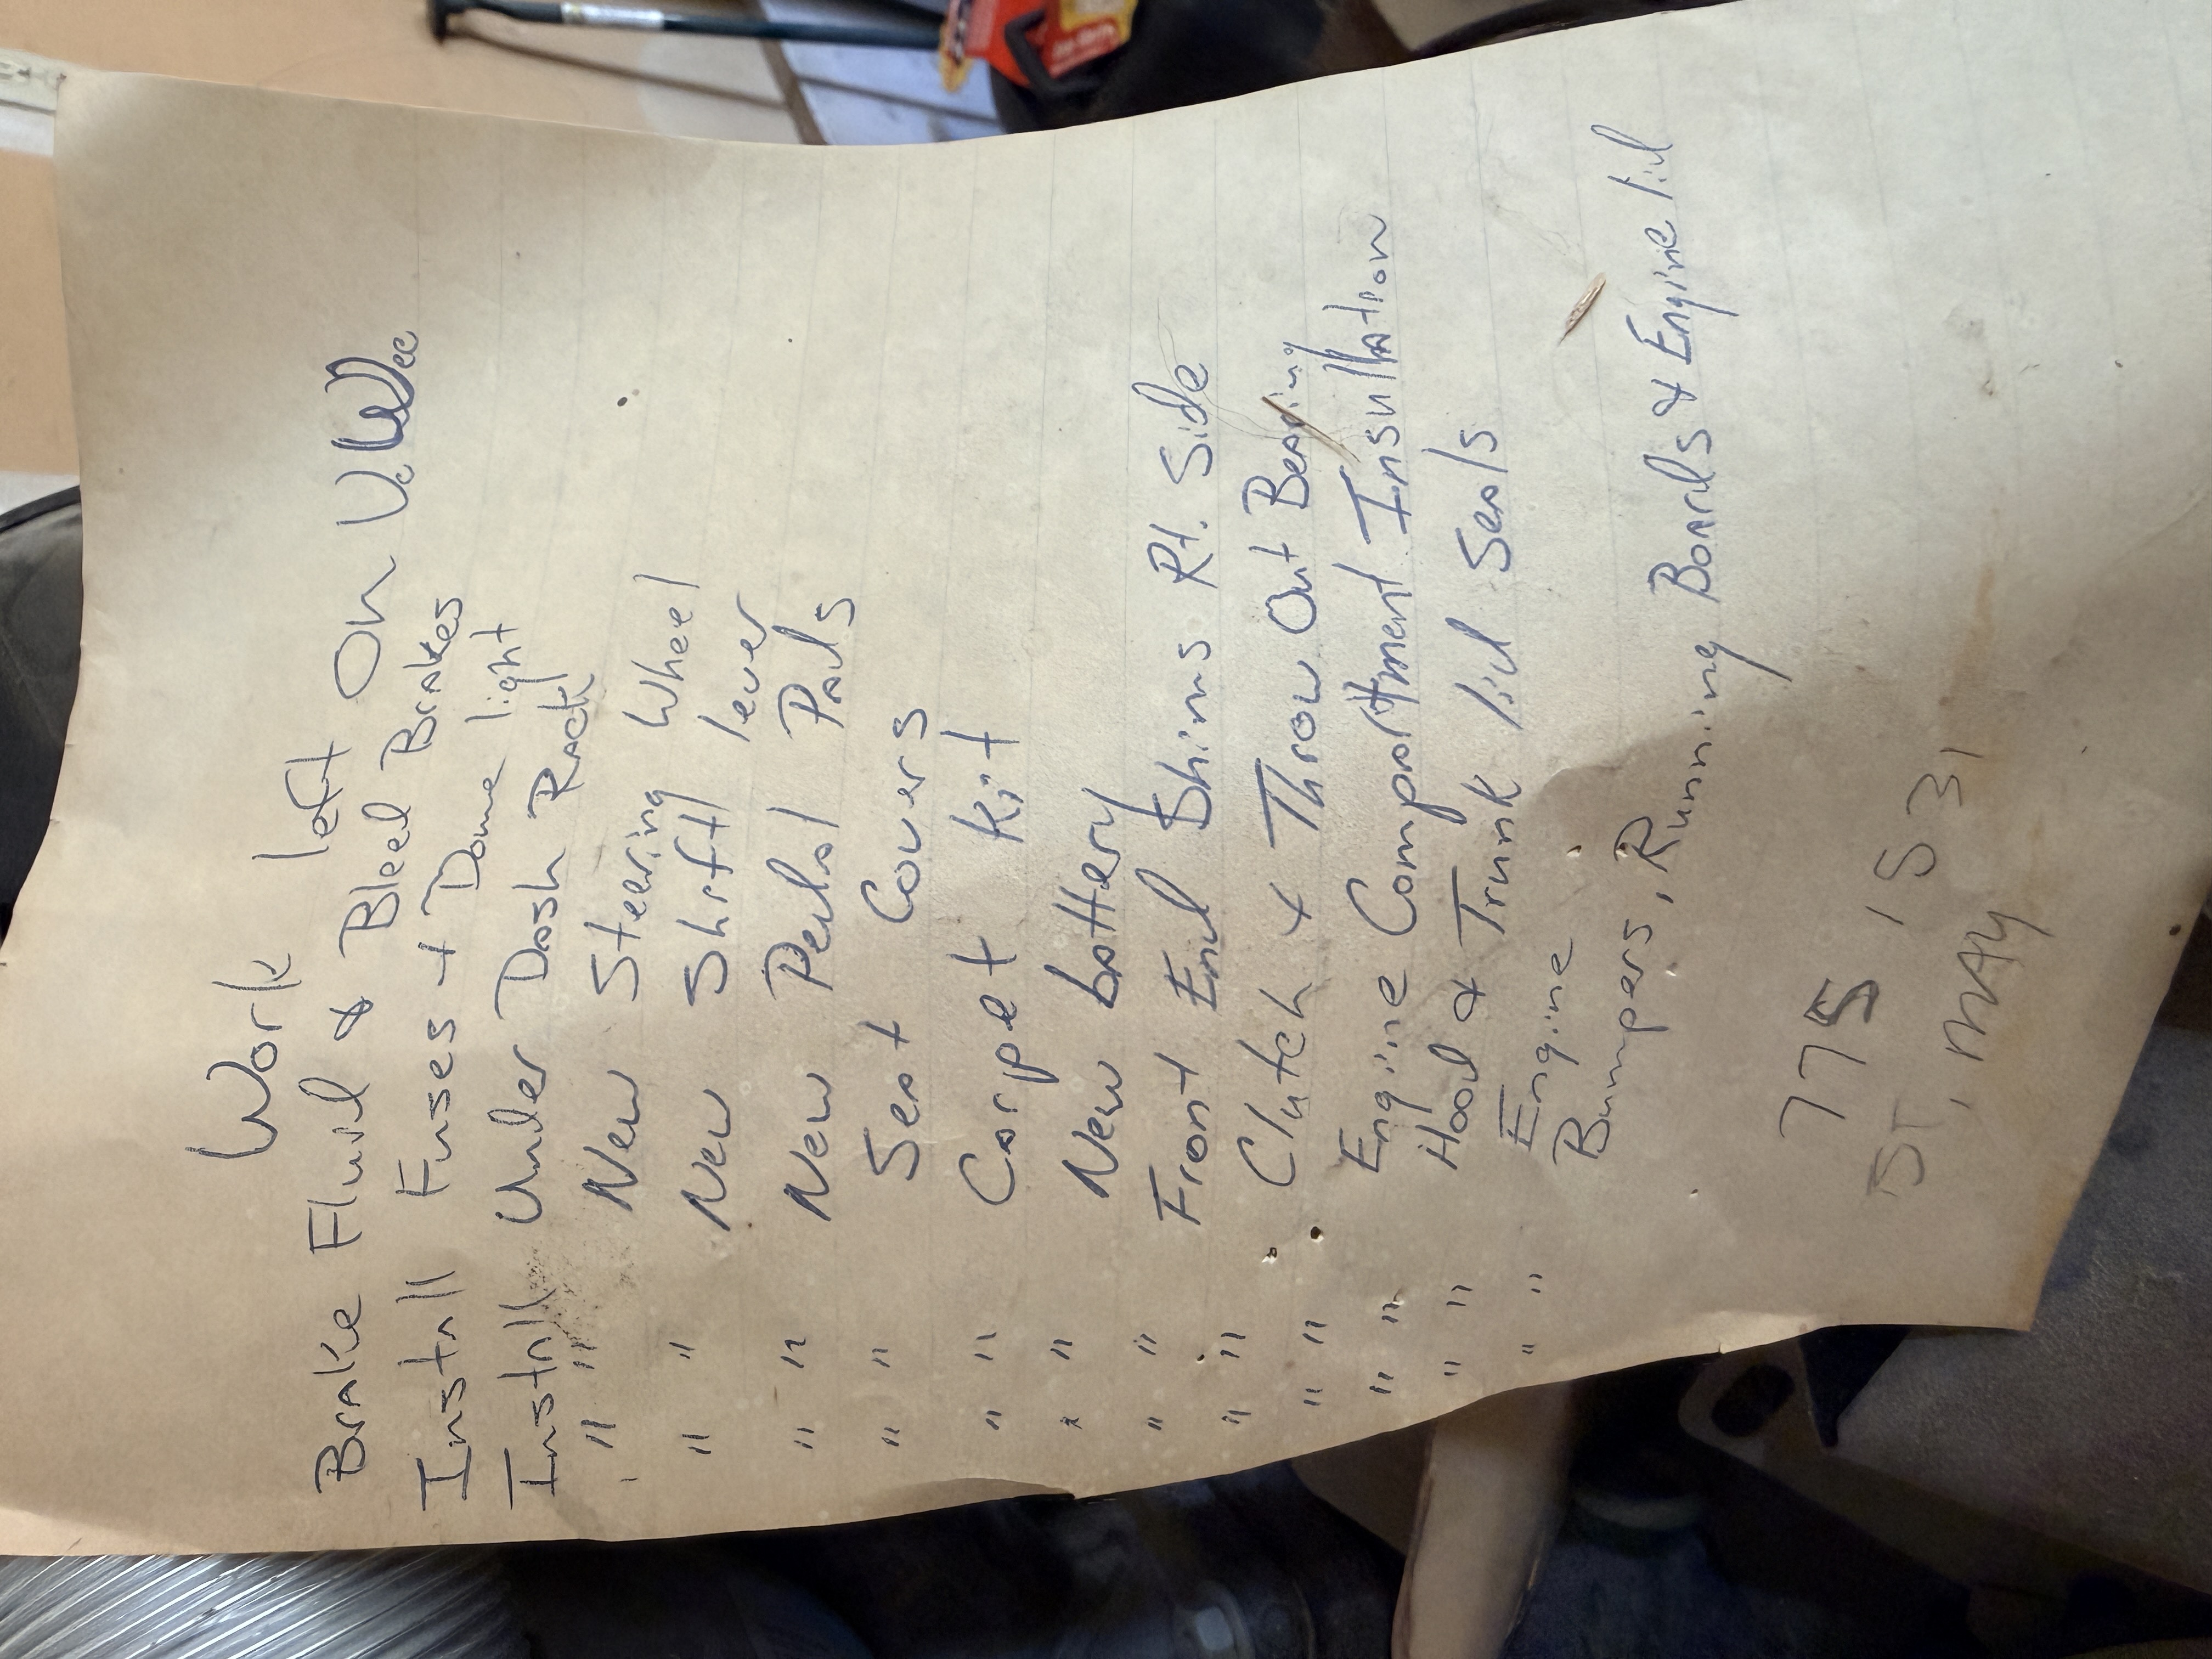 Work left On V.Wee
Brake Fluid & Bleed Brakes
Install Fuses + Dome light
Install Under Dash Rack
" " New Steering Wheel
" " New Shift lever
" " New Pedal Pads
" " Seat Covers
" " Carpet Kit
" " New battery
" " Front End Shims Rt. Side
" " Clutch & Throw Out Bearing
" " Engine Compartment Insullation
" " Hood & Trunk lid Seals
" " Engine
" " Bumpers, Running Boards & Engine lid
775 1531
ST, MAY